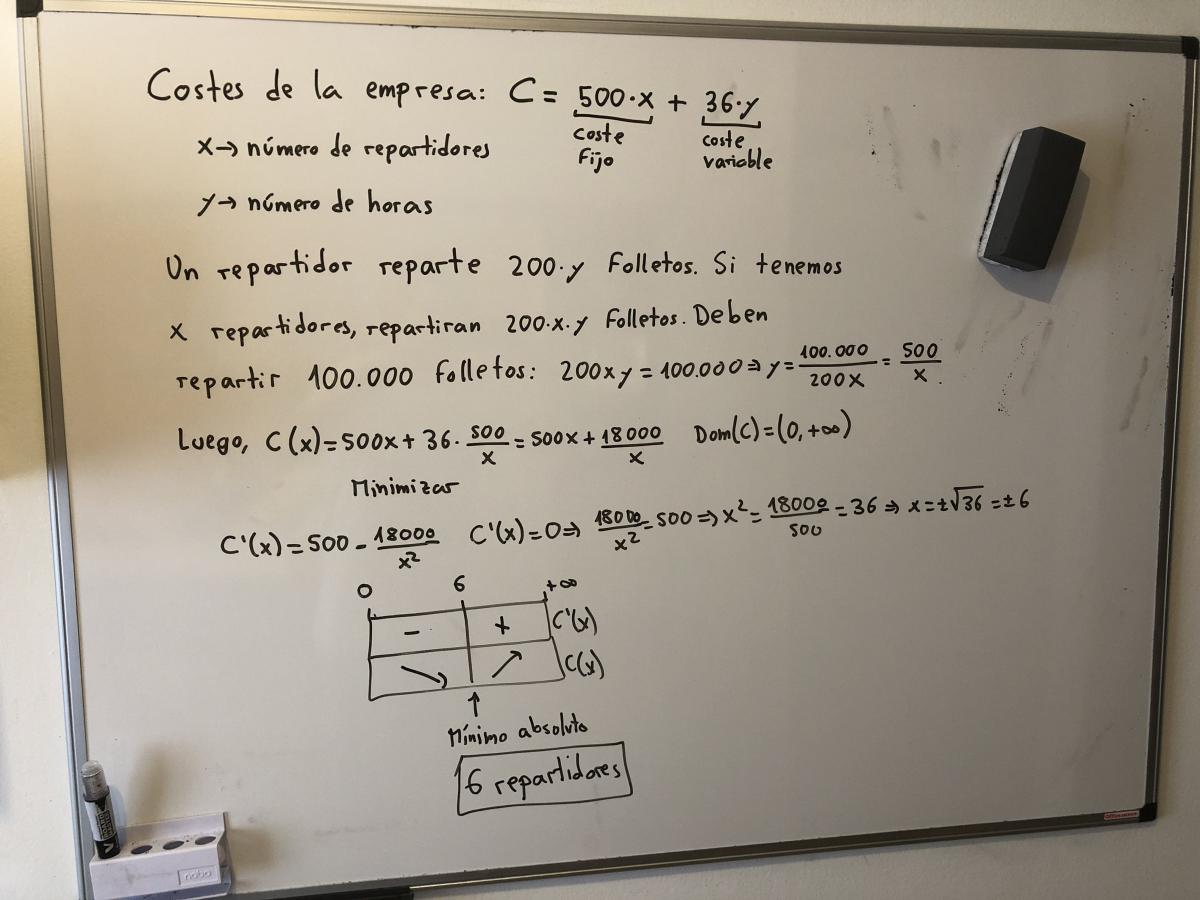 Costes de la empresa: C = 500·x + 36·y
coste fijo coste variable
x → número de repartidores
y → número de horas
Un repartidor reparte 200·y folletos. Si tenemos
x repartidores, repartiran 200·x·y folletos. Deben
repartir 100.000 folletos: 200xy = 100.000 ⇒ y = 100.000/200x = 500/x.
Luego, C(x) = 500x + 36·500/x = 500x + 18000/x Dom(C) = (0, +∞)
Minimizar
C'(x) = 500 - 18000/x² C'(x) = 0 ⇒ 18000/x² = 500 ⇒ x² = 18000/500 = 36 ⇒ x = ±√36 = ±6
0 6 +∞
- + C'(x)
↘ ↗ C(x)
↑
Mínimo absoluto
6 repartidores
nobo